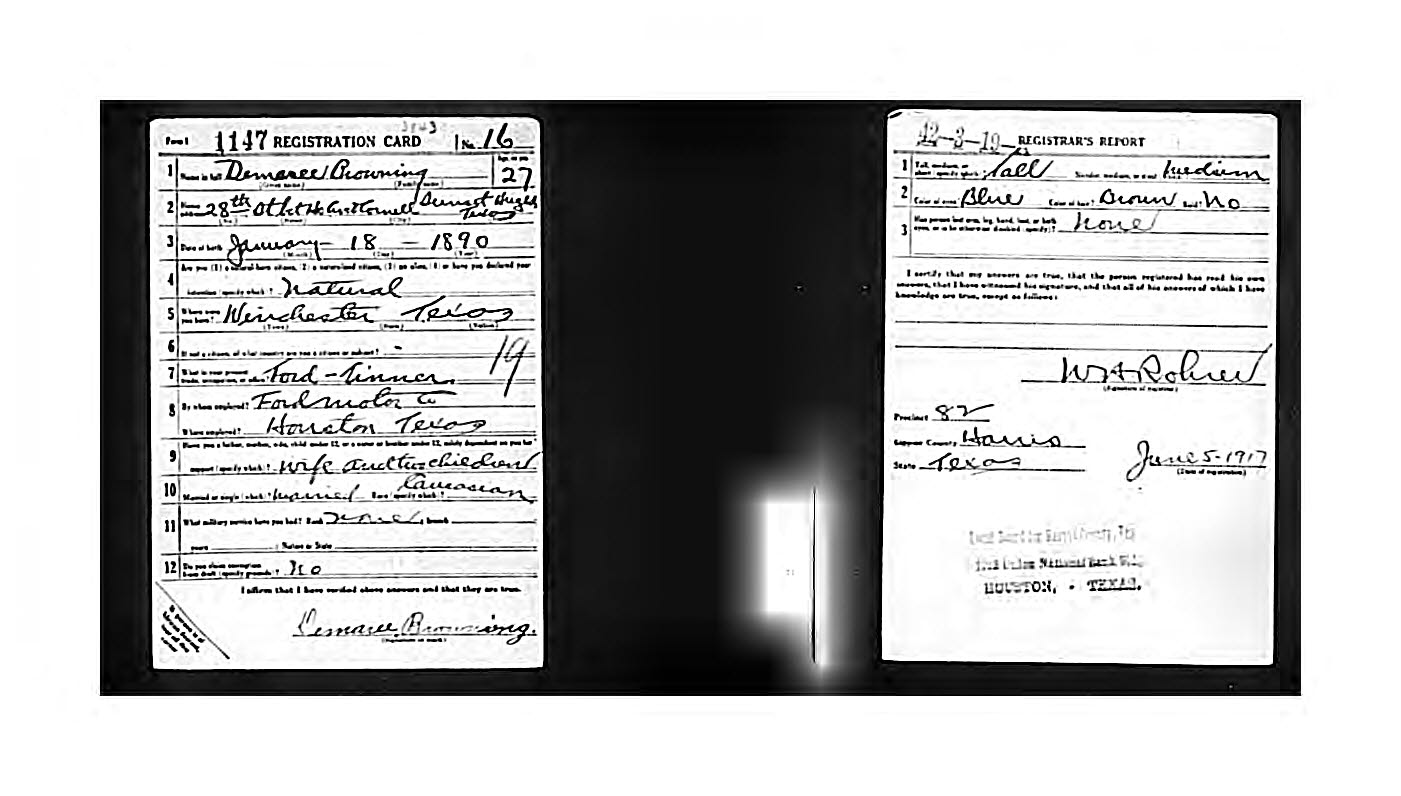 Form 1 1147 REGISTRATION CARD No. 16
1 Name in full Demaree Browning Age, in yrs 27
(Given name) (Family name)
2 Home address 28th Sunset Heights Texas
(No.) (Street) (City)
3 Date of birth January - 18 - 1890
(Month) (Day) (Year)
Are you (1) a natural-born citizen, (2) a naturalized citizen, (3) an alien, (4) or have you declared your
4 intention (specify which)? Natural
5 Where were you born? Winchester Texas
(Town) (State) (Nation)
6 If not a citizen, of what country are you a citizen or subject? -
19
7 What is your present trade, occupation, or office? Ford - Tinner
8 By whom employed? Ford motor Co
Where employed? Houston Texas
9 Have you a father, mother, wife, child under 12, or a sister or brother under 12, solely dependent on you for
support (specify which)? Wife and two children
10 Married or single (which)? Married Race (specify which)? Caucasian
11 What military service have you had? Rank None branch
years Nation or State
12 Do you claim exemption from draft (specify grounds)? No
I affirm that I have verified above answers and that they are true.
Demaree Browning.
(Signature or mark)
42-3-19 REGISTRAR'S REPORT
1 Tall, medium, or short (specify which)? Tall Slender, medium, or stout? Medium
2 Color of eyes? Blue Color of hair? Brown Bald? No
3 Has person lost arm, leg, hand, foot, or both eyes, or is he otherwise disabled (specify)? None
I certify that my answers are true, that the person registered has read his own
answers, that I have witnessed his signature, and that all of his answers of which I have
knowledge are true, except as follows:
WH Rohrer
(Signature of registrar)
Precinct 82
County Harris
State Texas
June 5-1917
(Date of registration)
Local Board for Harris County, Tex
Union National Bank Bldg.
HOUSTON, - TEXAS.